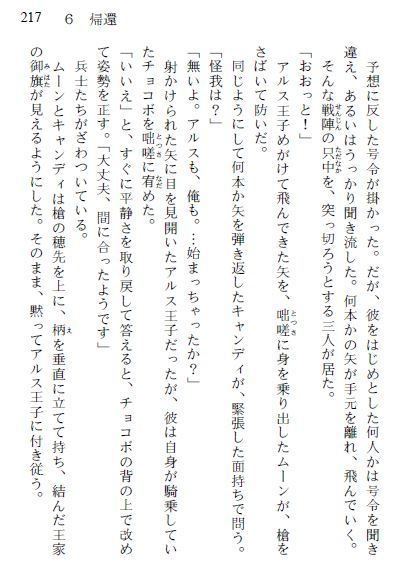 217　６　帰還
予想に反した号令が掛かった。だが、彼をはじめとした何人かは号令を聞き
違え、あるいはうっかり聞き流した。何本かの矢が手元を離れ、飛んでいく。
そんな戦陣の只中を、突っ切ろうとする三人が居た。
「おおっと！」
アルス王子めがけて飛んできた矢を、咄嗟に身を乗り出したムーンが、槍を
さばいて防いだ。
同じようにして何本か矢を弾き返したキャンディが、緊張した面持ちで問う。
「怪我は？」
「無いよ。アルスも、俺も。…始まっちゃったか？」
射かけられた矢に目を見開いたアルス王子だったが、彼は自身が騎乗してい
たチョコボを咄嗟に宥めた。
「いいえ」と、すぐに平静さを取り戻して答えると、チョコボの背の上で改め
て姿勢を正す。「大丈夫、間に合ったようです」
兵士たちがざわついている。
ムーンとキャンディは槍の穂先を上に、柄を垂直に立てて持ち、結んだ王家
の御旗が見えるようにした。そのまま、黙ってアルス王子に付き従う。